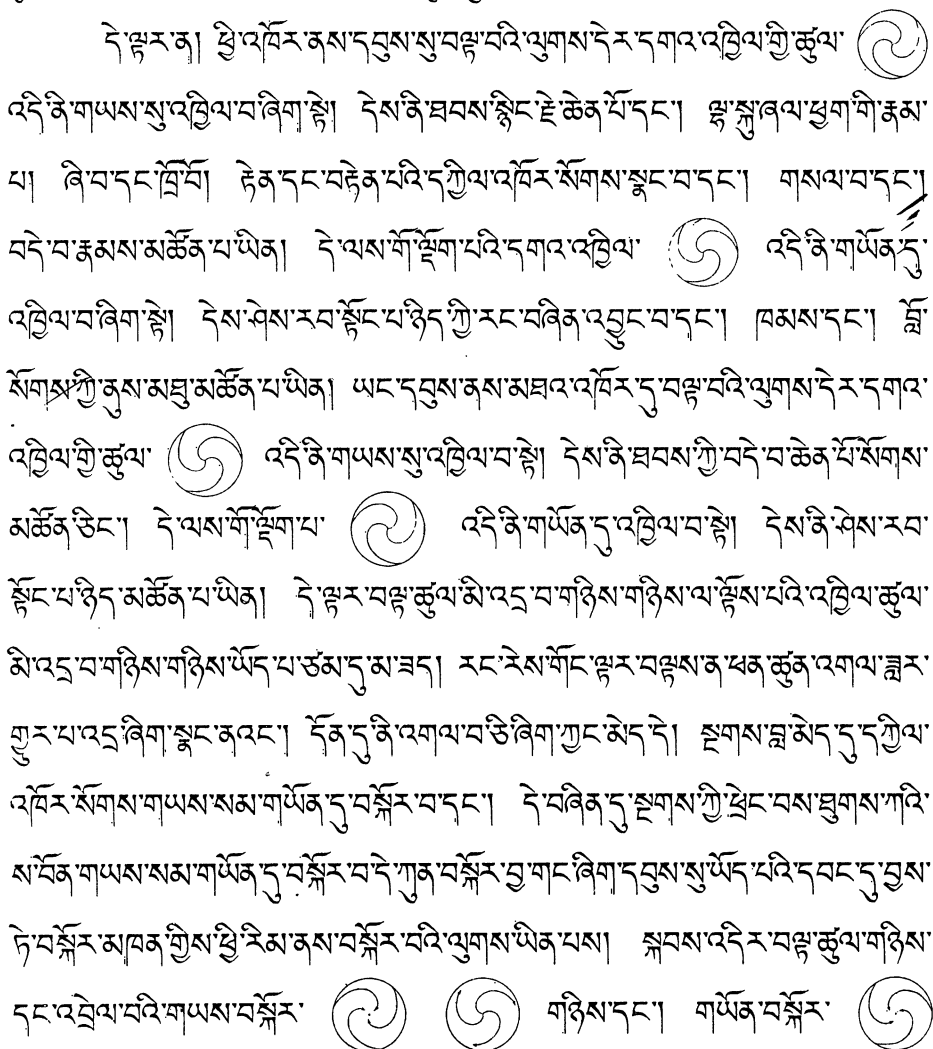 དེ་ལྟར་ན། ཕྱི་འཁོར་ནས་དབུས་སུ་བལྟ་བའི་ལུགས་དེར་དགའ་འཁྱིལ་གྱི་ཚུལ་
འདི་ནི་གཡས་སུ་འཁྱིལ་བ་ཞིག་སྟེ། དེས་ནི་ཐབས་སྙིང་རྗེ་ཆེན་པོ་དང་། ལྷ་སྐུ་ཞལ་ཕྱག་གི་རྣམ་
པ། ཞི་བ་དང་ཁྲོ་བོ། རྟེན་དང་བརྟེན་པའི་དཀྱིལ་འཁོར་སོགས་སྣང་བ་དང་། གསལ་བ་དང་།
བདེ་བ་རྣམས་མཚོན་པ་ཡིན། དེ་ལས་གོ་ལྡོག་པའི་དགའ་འཁྱིལ་ འདི་ནི་གཡོན་དུ་
འཁྱིལ་བ་ཞིག་སྟེ། དེས་ཤེས་རབ་སྟོང་པ་ཉིད་ཀྱི་རང་བཞིན་འབྱུང་བ་དང་། ཁམས་དང་། བློ་
སོགས་ཀྱི་ནུས་མཐུ་མཚོན་པ་ཡིན། ཡང་དབུས་ནས་མཐའ་འཁོར་དུ་བལྟ་བའི་ལུགས་དེར་དགའ་
འཁྱིལ་གྱི་ཚུལ་ འདི་ནི་གཡས་སུ་འཁྱིལ་བ་སྟེ། དེས་ནི་ཐབས་ཀྱི་བདེ་བ་ཆེན་པོ་སོགས་
མཚོན་ཅིང་། དེ་ལས་གོ་ལྡོག་པ་ འདི་ནི་གཡོན་དུ་འཁྱིལ་བ་སྟེ། དེས་ནི་ཤེས་རབ་
སྟོང་པ་ཉིད་མཚོན་པ་ཡིན། དེ་ལྟར་བལྟ་ཚུལ་མི་འདྲ་བ་གཉིས་གཉིས་ལ་ལྟོས་པའི་འཁྱིལ་ཚུལ་
མི་འདྲ་བ་གཉིས་གཉིས་ཡོད་པ་ཙམ་དུ་མ་ཟད། རང་རེས་གོང་ལྟར་བལྟས་ན་ཕན་ཚུན་འགལ་ཟླར་
གྱུར་པ་འདྲ་ཞིག་སྣང་ནའང་། དོན་དུ་ནི་འགལ་བ་ཅི་ཞིག་ཀྱང་མེད་དེ། སྔགས་བླ་མེད་དུ་དཀྱིལ་
འཁོར་སོགས་གཡས་སམ་གཡོན་དུ་བསྐོར་བ་དང་། དེ་བཞིན་དུ་སྔགས་ཀྱི་ཕྲེང་བས་ཐུགས་ཀའི་
ས་བོན་གཡས་སམ་གཡོན་དུ་བསྐོར་བ་དེ་ཀུན་བསྐོར་བྱ་གང་ཞིག་དབུས་སུ་ཡོད་པའི་དབང་དུ་བྱས་
ཏེ་བསྐོར་མཁན་གྱིས་ཕྱི་རིམ་ནས་བསྐོར་བའི་ལུགས་ཡིན་པས། སྐབས་འདིར་བལྟ་ཚུལ་གཉིས་
དང་འབྲེལ་བའི་གཡས་བསྐོར་ གཉིས་དང་། གཡོན་བསྐོར་